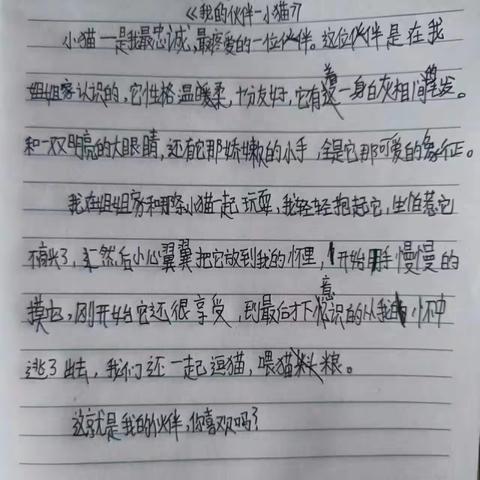 《我的伙伴—小猫》
小猫一是我最忠诚,最疼爱的一位伙伴。这位伙伴是在我
姐姐家认识的,它性格温暖柔,十分友好,它有着一身白灰相间的毛发。
和一双明亮的大眼睛,还有它那娇嫩的小手,全是它那可爱的象征。
我在姐姐家和那只小猫一起玩耍,我轻轻抱起它,生怕惹它
不高兴了,然后小心翼翼把它放到我的怀里,开始用手慢慢的
摸它,刚开始它还很享受,到最后才下意识的从我的怀中
逃了出去,我们还一起逗猫,喂猫粮。
这就是我的伙伴,你喜欢吗?